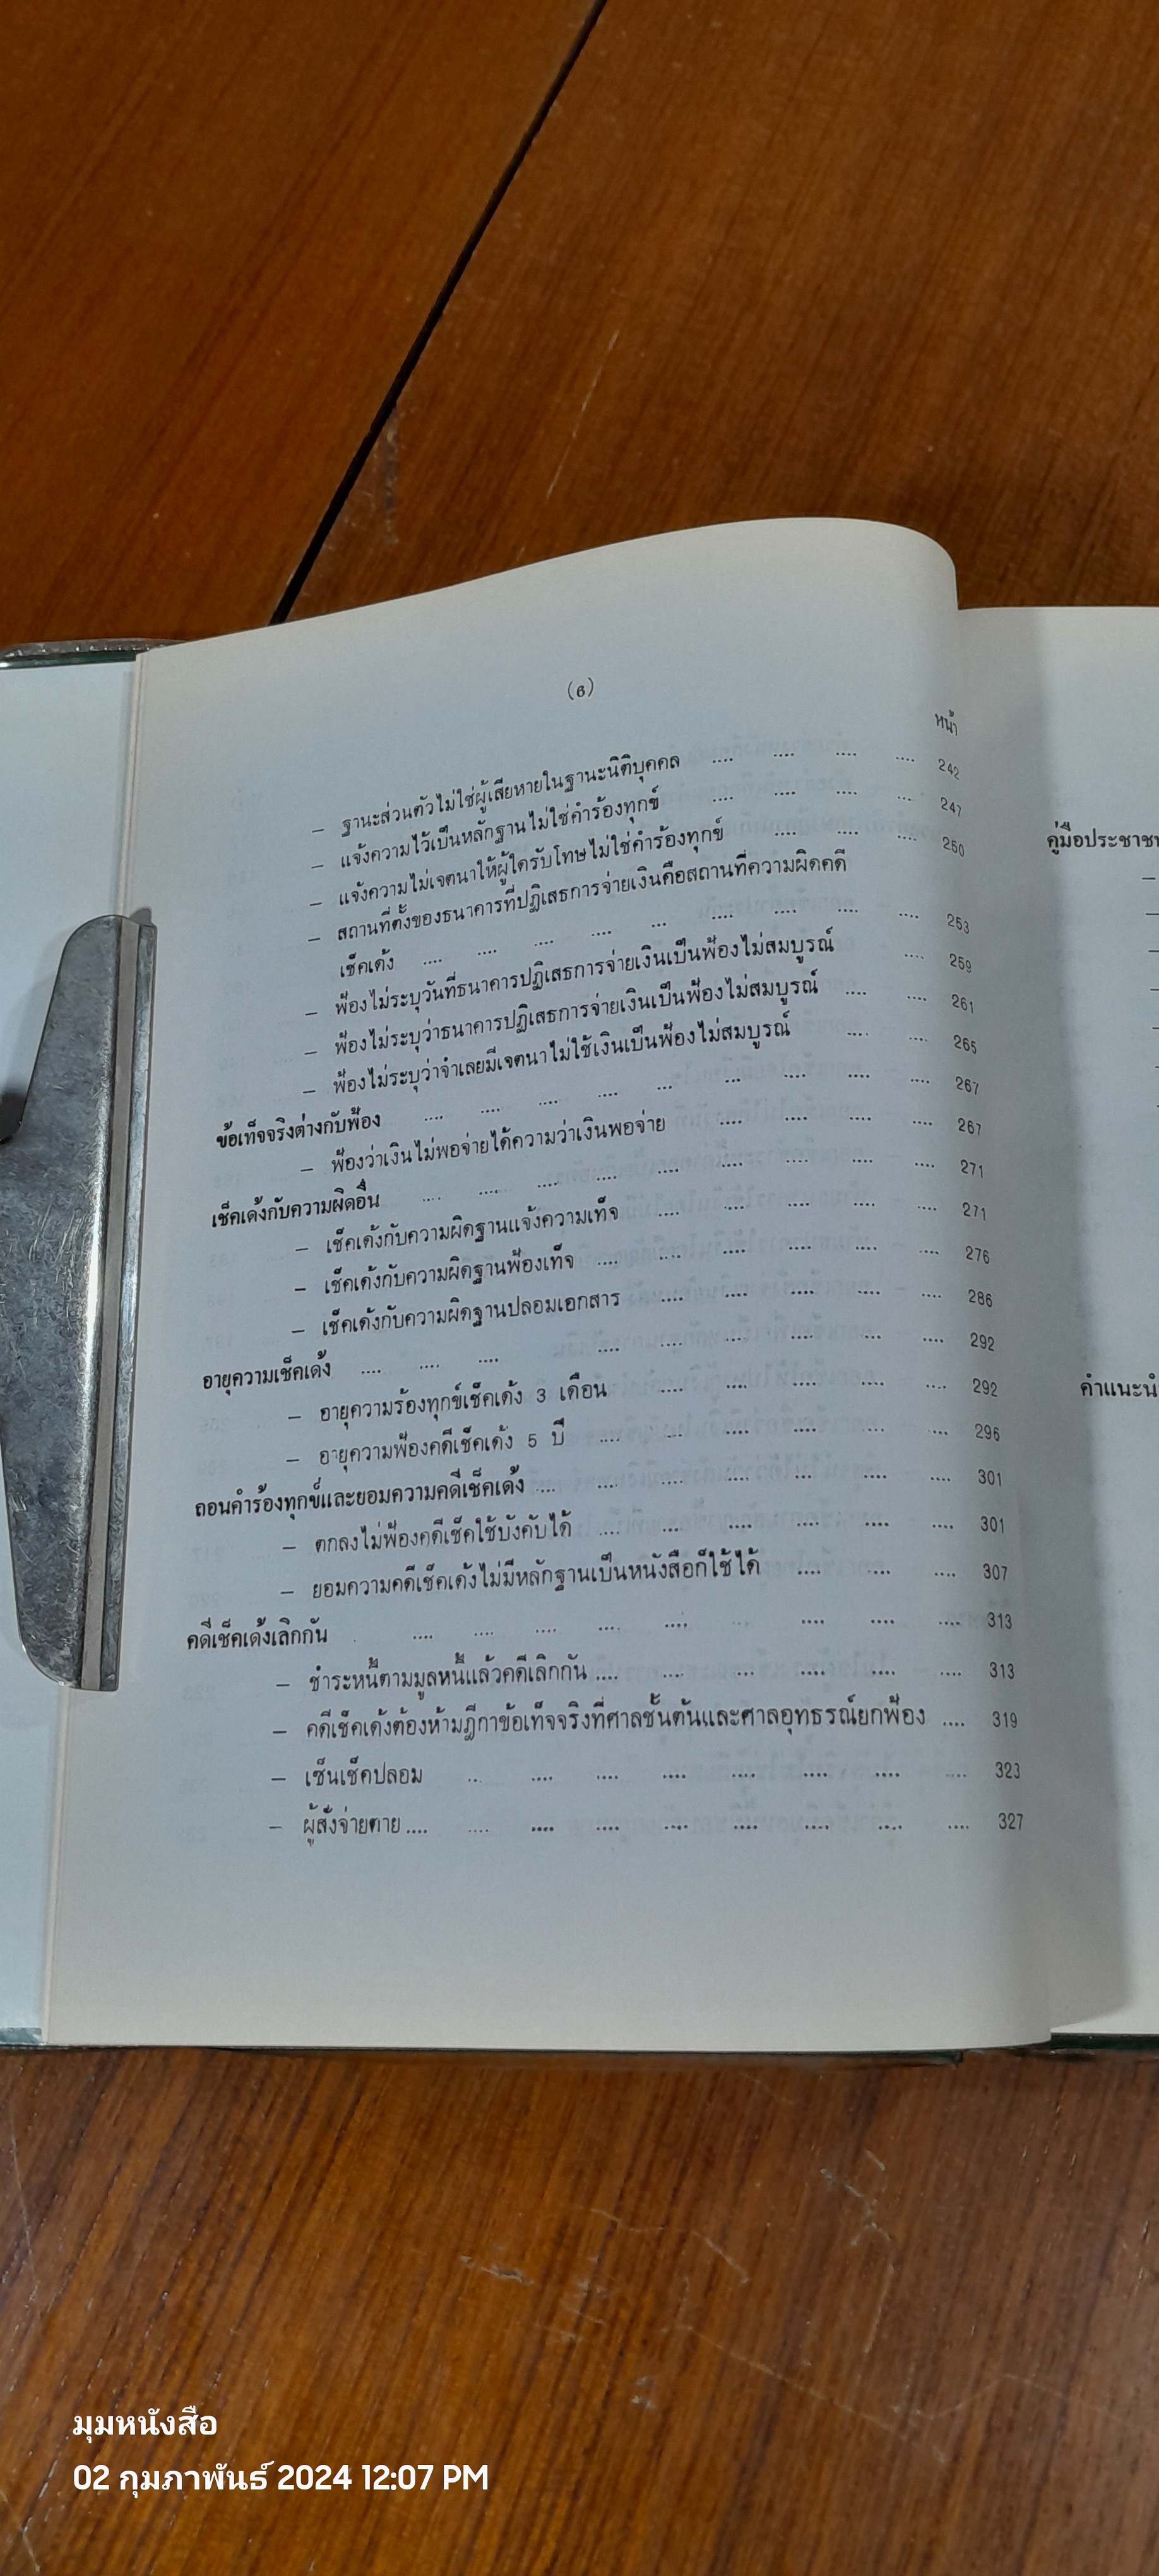 (๖)
หน้า
— ฐานะส่วนตัวไม่ใช่ผู้เสียหายในฐานะนิติบุคคล .... .... .... .... 242
— แจ้งความไว้เป็นหลักฐานไม่ใช่คำร้องทุกข์ .... .... .... ... 247
— แจ้งความไม่เจตนาให้ผู้ใดรับโทษไม่ใช่คำร้องทุกข์ .... .... .... 250
— สถานที่ตั้งของธนาคารที่ปฏิเสธการจ่ายเงินคือสถานที่ความผิดคดี
เช็คเด้ง .... .... .... .... ... .... .... .... .... 253
— ฟ้องไม่ระบุวันที่ธนาคารปฏิเสธการจ่ายเงินเป็นฟ้องไม่สมบูรณ์ .... 259
— ฟ้องไม่ระบุว่าธนาคารปฏิเสธการจ่ายเงินเป็นฟ้องไม่สมบูรณ์ .... .... 261
— ฟ้องไม่ระบุว่าจำเลยมีเจตนาไม่ใช้เงินเป็นฟ้องไม่สมบูรณ์ .... .... 265
ข้อเท็จจริงต่างกับฟ้อง .... .... .... .... ... ... .... .... .... 267
— ฟ้องว่าเงินไม่พอจ่ายได้ความว่าเงินพอจ่าย .... .... .... .... 267
เช็คเด้งกับความผิดอื่น .... .... .... .... .... .... .... .... .... 271
— เช็คเด้งกับความผิดฐานแจ้งความเท็จ .... .... .... .... .... 271
— เช็คเด้งกับความผิดฐานฟ้องเท็จ .... .... .... .... .... .... 276
— เช็คเด้งกับความผิดฐานปลอมเอกสาร .... .... .... .... .... 286
อายุความเช็คเด้ง .... .... .... .... .... ... .... ... .... 292
— อายุความร้องทุกข์เช็คเด้ง 3 เดือน .... .... .... .... .... 292
— อายุความฟ้องคดีเช็คเด้ง 5 ปี .... .... .... .... .... .... 296
ถอนคำร้องทุกข์และยอมความคดีเช็คเด้ง .... .... .... .... ... .... .... 301
— ตกลงไม่ฟ้องคดีเช็คใช้บังคับได้ .... ... .... .... .... .... 301
— ยอมความคดีเช็คเด้งไม่มีหลักฐานเป็นหนังสือก็ใช้ได้ .... ... .... 307
คดีเช็คเด้งเลิกกัน .... .... .... .... .... ... .... .... .... 313
— ชำระหนี้ตามมูลหนี้แล้วคดีเลิกกัน .... .... ... .... .... .... 313
— คดีเช็คเด้งต้องห้ามฎีกาข้อเท็จจริงที่ศาลชั้นต้นและศาลอุทธรณ์ยกฟ้อง .... 319
— เซ็นเช็คปลอม ... .... .... .... .... .... .... .... 323
— ผู้สั่งจ่ายตาย .... .... .... .... .... .... .... .... .... 327
คู่มือประชาชน
คำแนะนำ
มุมหนังสือ
02 กุมภาพันธ์ 2024 12:07 PM